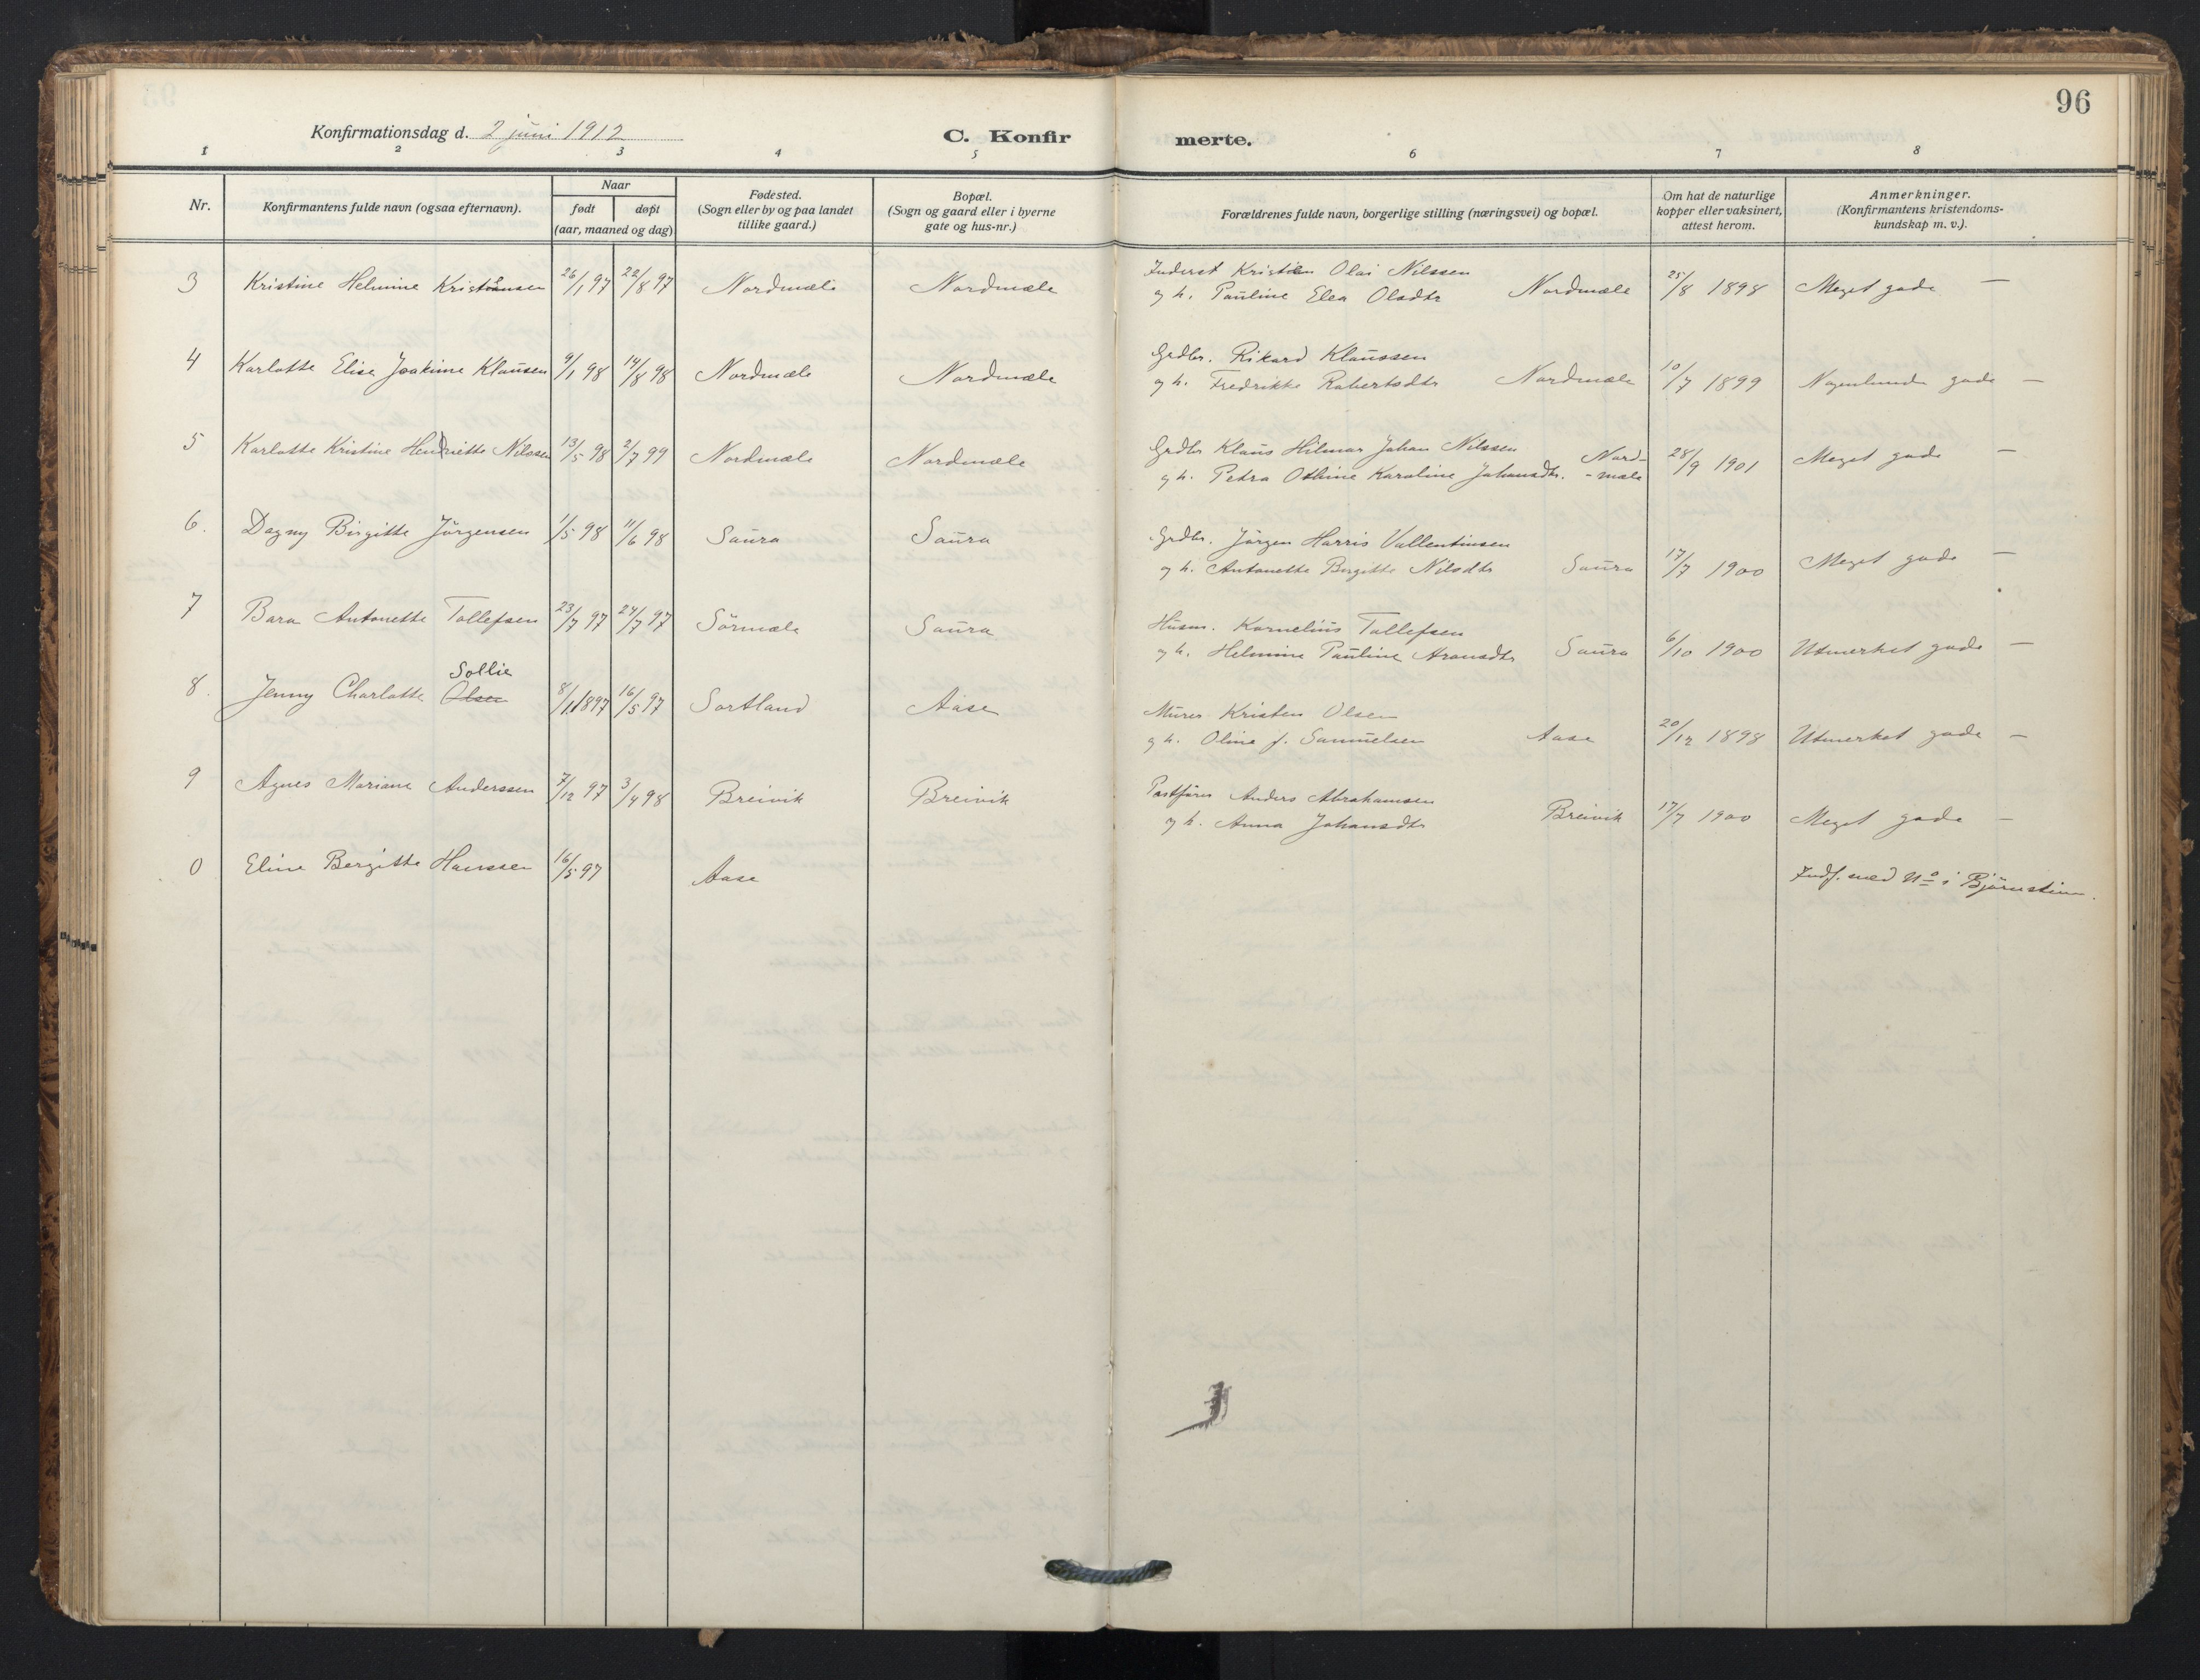 96
Konfirmationsdag d. 2 juni 1912
C. Konfirmerte.
1 2 3 4 5 6 7 8
Nr.
Konfirmantens fulde navn (ogsaa efternavn).
Naar
født døpt
(aar, maaned og dag)
Fødested.
(Sogn eller by og paa landet
tillike gaard.)
Bopæl.
(Sogn og gaard eller i byerne
gate og hus-nr.)
Forældrenes fulde navn, borgerlige stilling (næringsvei) og bopæl.
Om hat de naturlige
kopper eller vaksinert,
attest herom.
Anmerkninger.
(Konfirmantens kristendoms-
kundskap m. v.).
3 Kristine Helmine Kristiansen 26/1 97 22/8 97 Nordmæle Nordmæle Inderst Kristian Olai Nilssen
og h. Pauline Elea Olsdtr Nordmæle 25/8 1898 Meget gode —
4 Karlotte Elise Joakime Klausen 9/1 98 14/8 98 Nordmæle Nordmæle Grdbr. Rikard Klaussen
og h. Fredrikke Robertsdtr Nordmæle 10/7 1899 Nogenlunde gode —
5 Karlotte Kristine Hendriette Nilssen 13/5 98 2/7 99 Nordmæle Nordmæle Grdbr Klaus Hilmar Johan Nilssen
og h. Petra Othine Karoline Johansdtr. Nord-
-mæle 28/9 1901 Meget gode —
6. Dagny Birgitte Jörgensen 1/5 98 11/6 98 Saura Saura Grdbr. Jörgen Harris Vallentinsen
og h. Antonette Bergitte Nilsdtr Saura 17/7 1900 Meget gode —
7 Bara Antonette Tollefsen 23/7 97 24/7 97 Sörmæle Saura Husm. Kornelius Tollefsen
og h. Helmine Pauline Aronsdtr Saura 6/10 1900 Utmerket gode —
Sollie
8. Jenny Charlotte Olsen 8/1 1897 16/5 97 Sortland Aase Murer Kristen Olsen
og h. Oline f. Samuelsen Aase 20/12 1898 Utmerket gode —
9 Agnes Mariane Anderssen 7/12 97 3/4 98 Breivik Breivik Postfører Anders Abrahamsen
og h. Anna Johansdtr Breivik 17/7 1900 Meget gode —
0 Eline Bergitte Hanssen 16/5 97 Aase Indf. med No i Björnskinn.